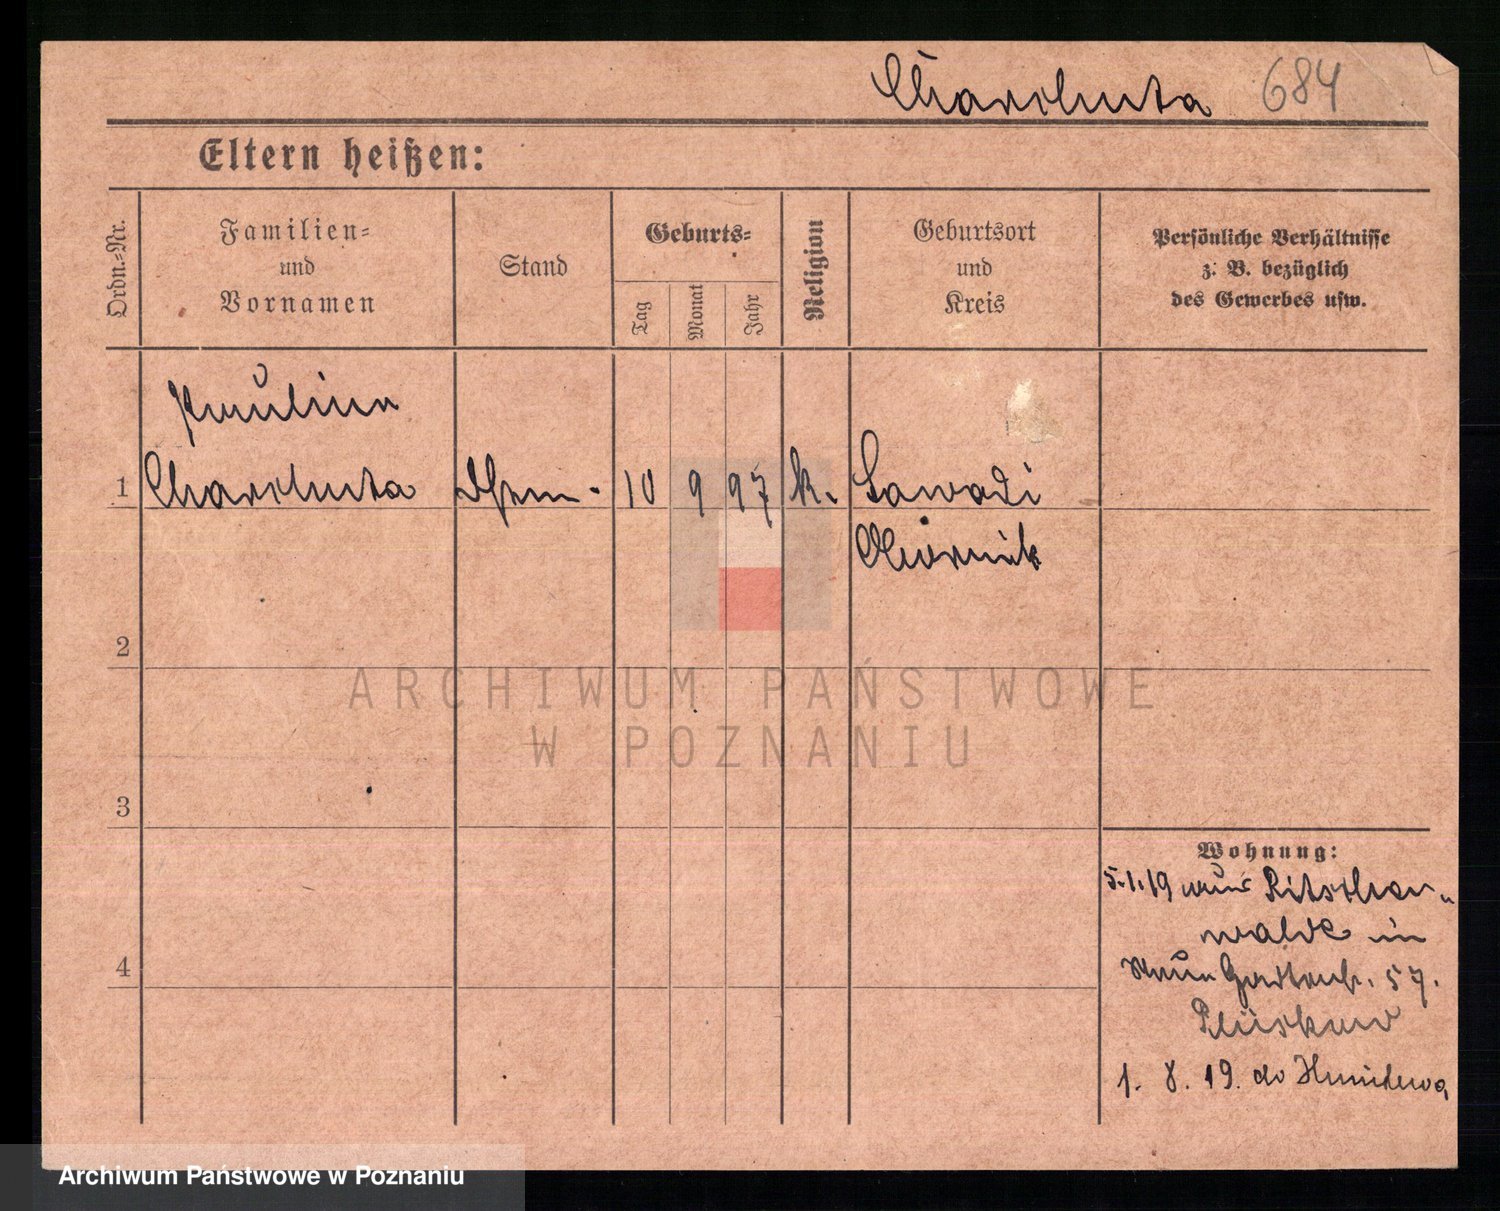 Charchuta 684
Eltern heißen:
Ordn.-Nr.
Familien-
und
Vornamen
Stand
Geburts-
Tag
Monat
Jahr
Religion
Geburtsort
und
Kreis
Persönliche Verhältnisse
z. B. bezüglich
des Gewerbes usw.
Paulina
1 Charchuta 10 9 97 k. Zawadi
Obornik
2
3
4
Wohnung:
5.1.19 aus Ritschen-
walde in
Gartenstr. 57.
1. 8. 19. do
ARCHIWUM PAŃSTWOWE
W POZNANIU
Archiwum Państwowe w Poznaniu